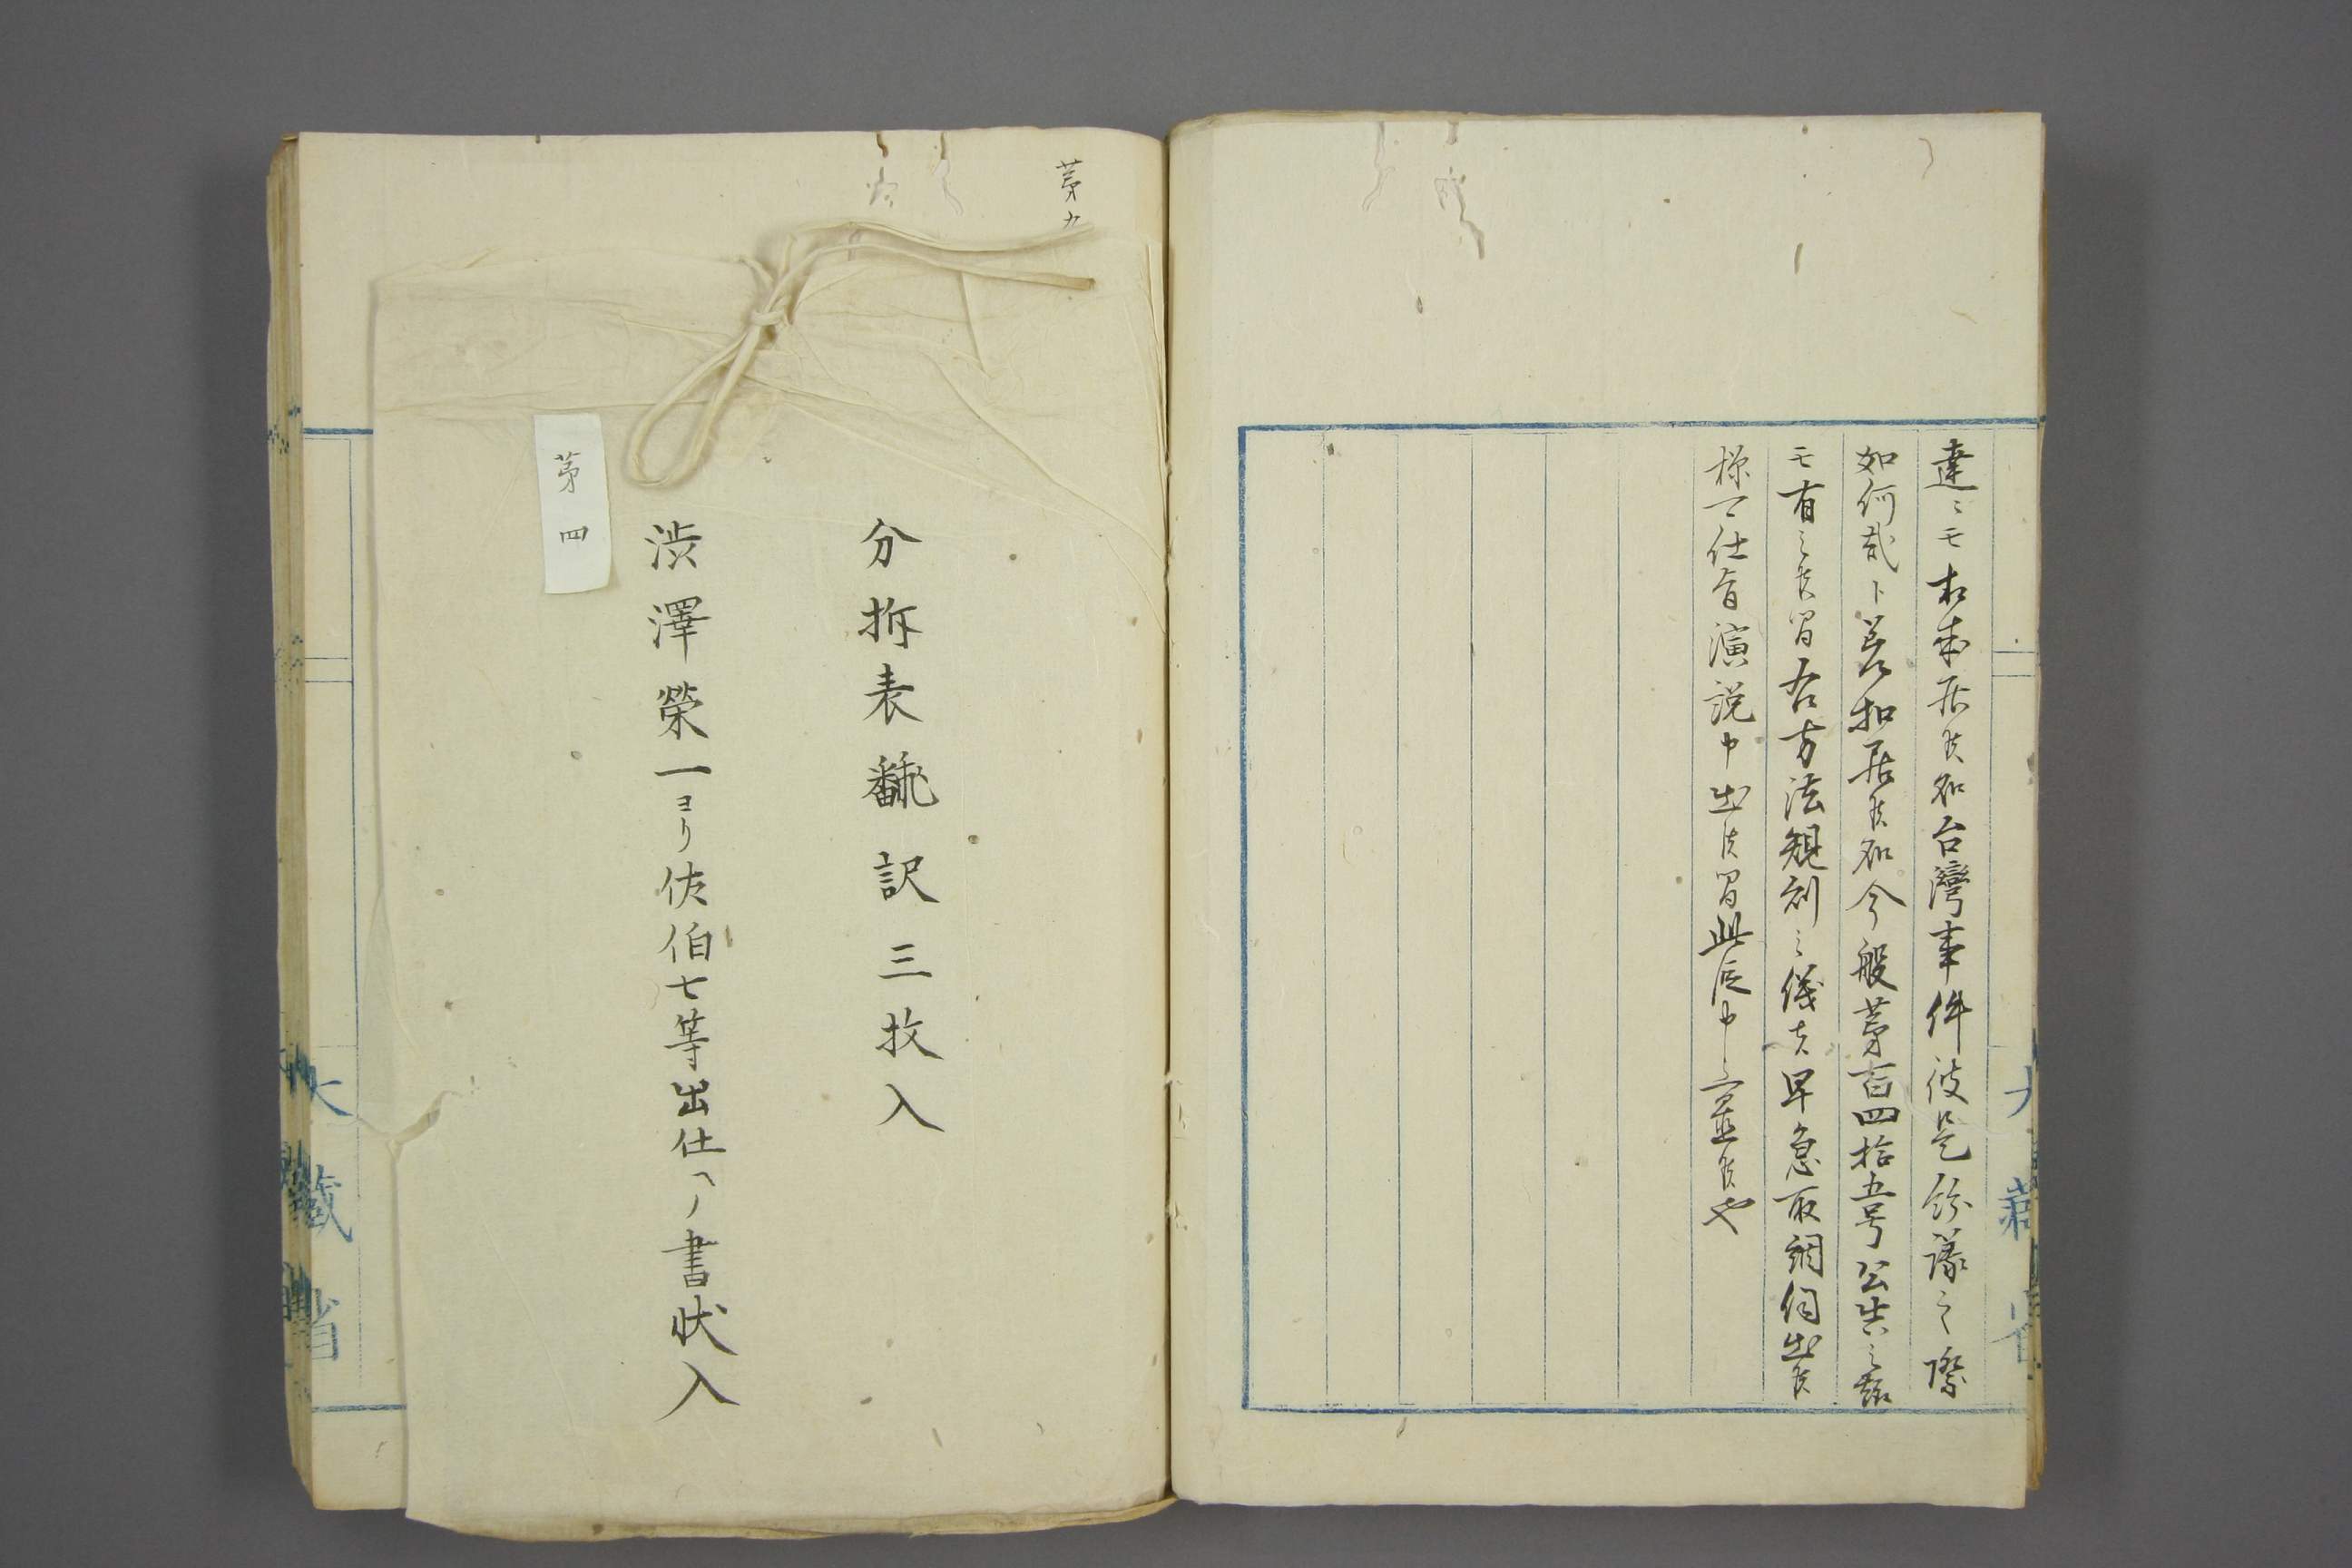 達ニモ相成居候処台湾事件彼是紛議之際
如何哉ト差扣居候処今般第百四拾五号公告之趣
モ有之候間右方法規則之儀者早急取調伺出候
様可仕旨演説申出候間此段申上置候也
大藏省
第九
分拆表飜訳三枚入
渋澤榮一ヨリ佐伯七等出仕ヘノ書状入
第四
大藏省